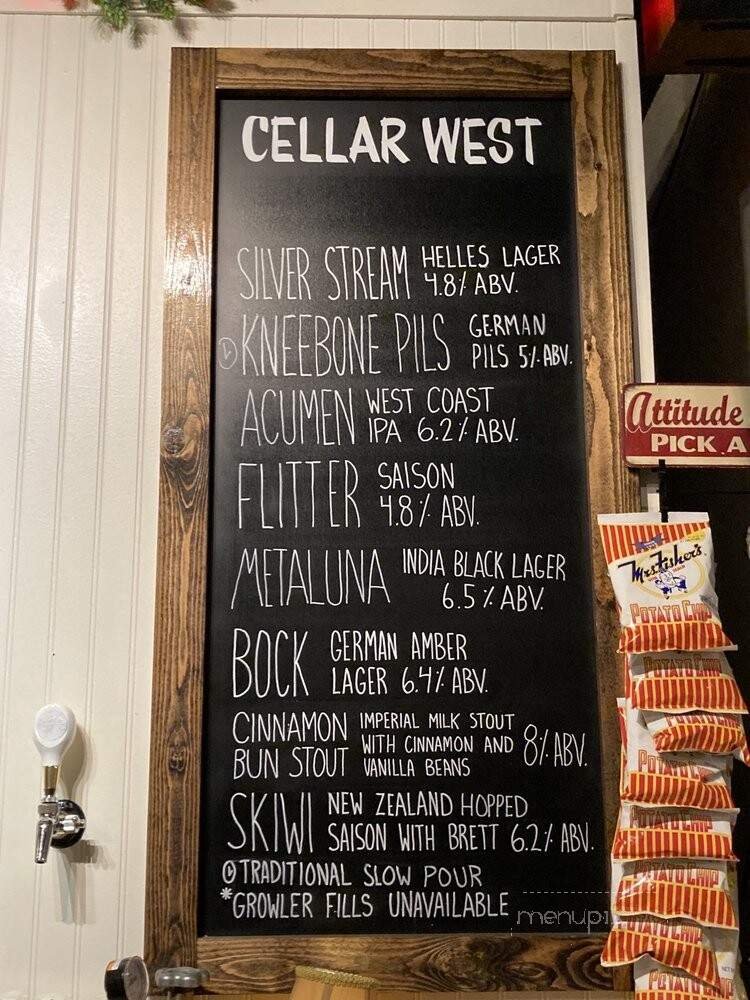 CELLAR WEST
SILVER STREAM HELLES LAGER
4.8% ABV.
KNEEBONE PILS GERMAN
PILS 5% ABV.
ACUMEN WEST COAST
IPA 6.2% ABV.
FLITTER SAISON
4.8% ABV.
METALUNA INDIA BLACK LAGER
6.5% ABV.
BOCK GERMAN AMBER
LAGER 6.4% ABV.
CINNAMON BUN STOUT IMPERIAL MILK STOUT
WITH CINNAMON AND
VANILLA BEANS 8% ABV.
SKIWI NEW ZEALAND HOPPED
SAISON WITH BRETT 6.2% ABV.
TRADITIONAL SLOW POUR
*GROWLER FILLS UNAVAILABLE
Attitude
PICK A
Mrs. Fisher's
POTATO CHIP
POTATO CHIP
POTATO CHIP
POTATO CHIP
POTATO CHIP
POTATO CHIP
POTATO CHIP
menupix